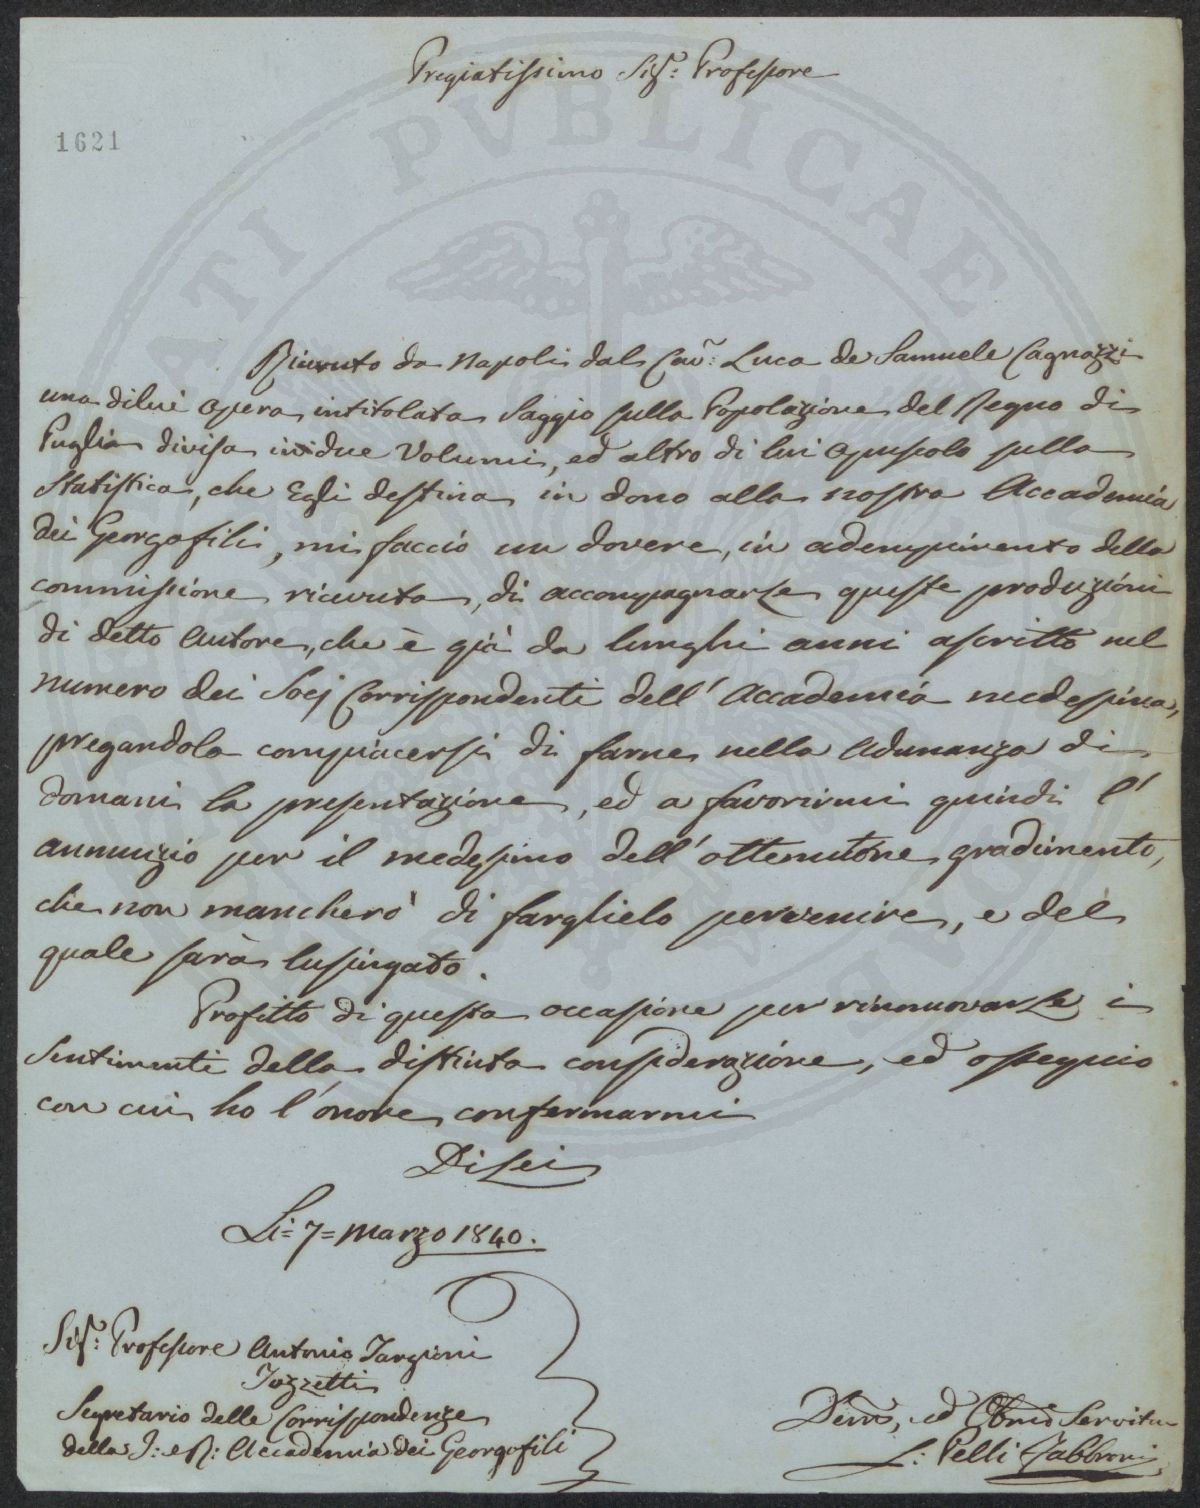 Pregiatissimo Sig.r Professore
1621
PVBLICAE
Ricevuto da Napoli dal Cav.: Luca de Samuele Cagnazzi
una di lui opera intitolata Saggio sulla Popolazione del Regno di
Puglia divisa in due Volumi, ed altro di lui opuscolo sulla
Statistica, che Egli destina in dono alla nostra Accademia
dei Georgofili, mi faccio un dovere, in adempimento della
commissione ricevuta, di accompagnarLe queste produzioni
di detto Autore, che è già da lunghi anni ascritto nel
numero dei Socj Corrispondenti dell' Accademia medesima,
pregandola compiacersi di farne nella Adunanza di
domani la presentazione, ed a favorirmi quindi l'
annunzio per il medesimo dell' ottenutone gradimento,
che non mancherò di farglielo pervenire, e del
quale sarà lusingato.
Profitto di questa occasione per rinnuovarLe i
sentimenti della distinta considerazione, ed ossequio
con cui ho l'onore confermarmi
Di Lei
Li= 7= Marzo 1840.
Sig.r: Professore Antonio Targioni
Tozzetti
Segretario delle Corrispondenze
della I: e R: Accademia dei Georgofili
Devmo, ed Obmo Servitu
L: Pelli Fabbroni